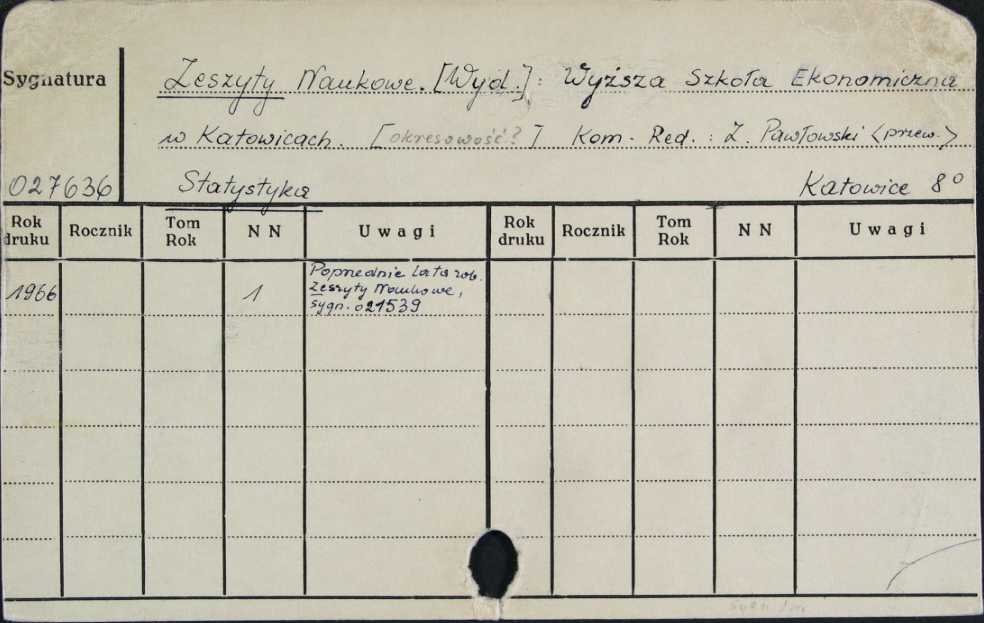 Sygnatura
Zeszyty Naukowe. [Wyd.]: Wyższa Szkoła Ekonomiczna
w Katowicach. [okresowość?] Kom. Red.: Z. Pawłowski <przew.>
027636 Statystyka Katowice 8º
Rok druku Rocznik Tom Rok NN Uwagi Rok druku Rocznik Tom Rok NN Uwagi
1966 1 Poprzednie lata zob.
Zeszyty Naukowe,
sygn. 021539